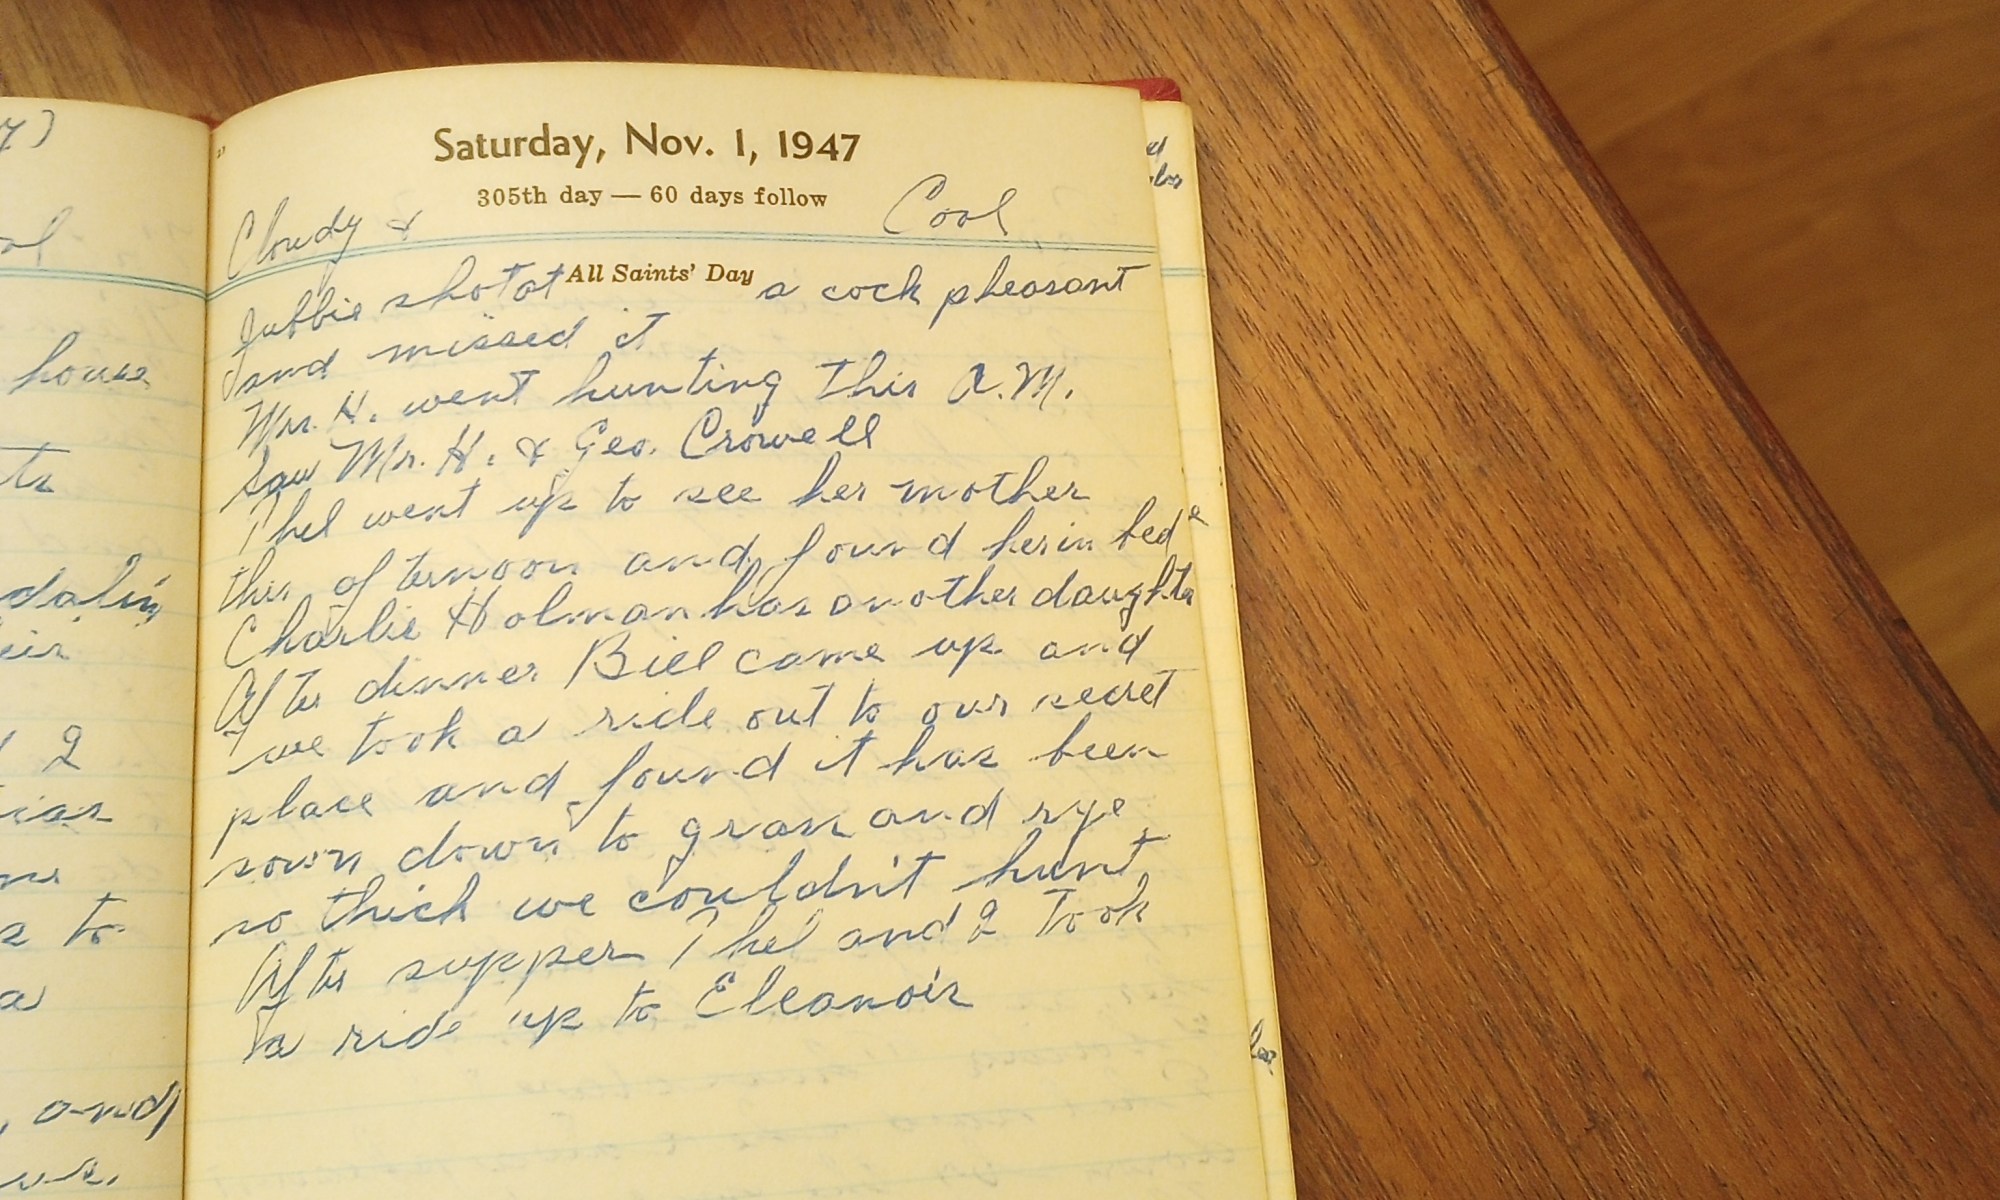 Saturday, Nov. 1, 1947
305th day — 60 days follow
Cloudy & Cool
All Saints' Day
Jubbie shot at a cock pheasant
and missed it
Mrs. H. went hunting this A.M.
Saw Mr. H. & Geo. Crowell
Thel went up to see her mother
this afternoon and found her in bed
Charlie Holman has another daughter
After dinner Bill came up and
we took a ride out to our secret
place and found it has been
sown down to grass and rye
so thick we couldn't hunt
After supper Thel and I took
a ride up to Eleanor's
house
I
to
a
, and